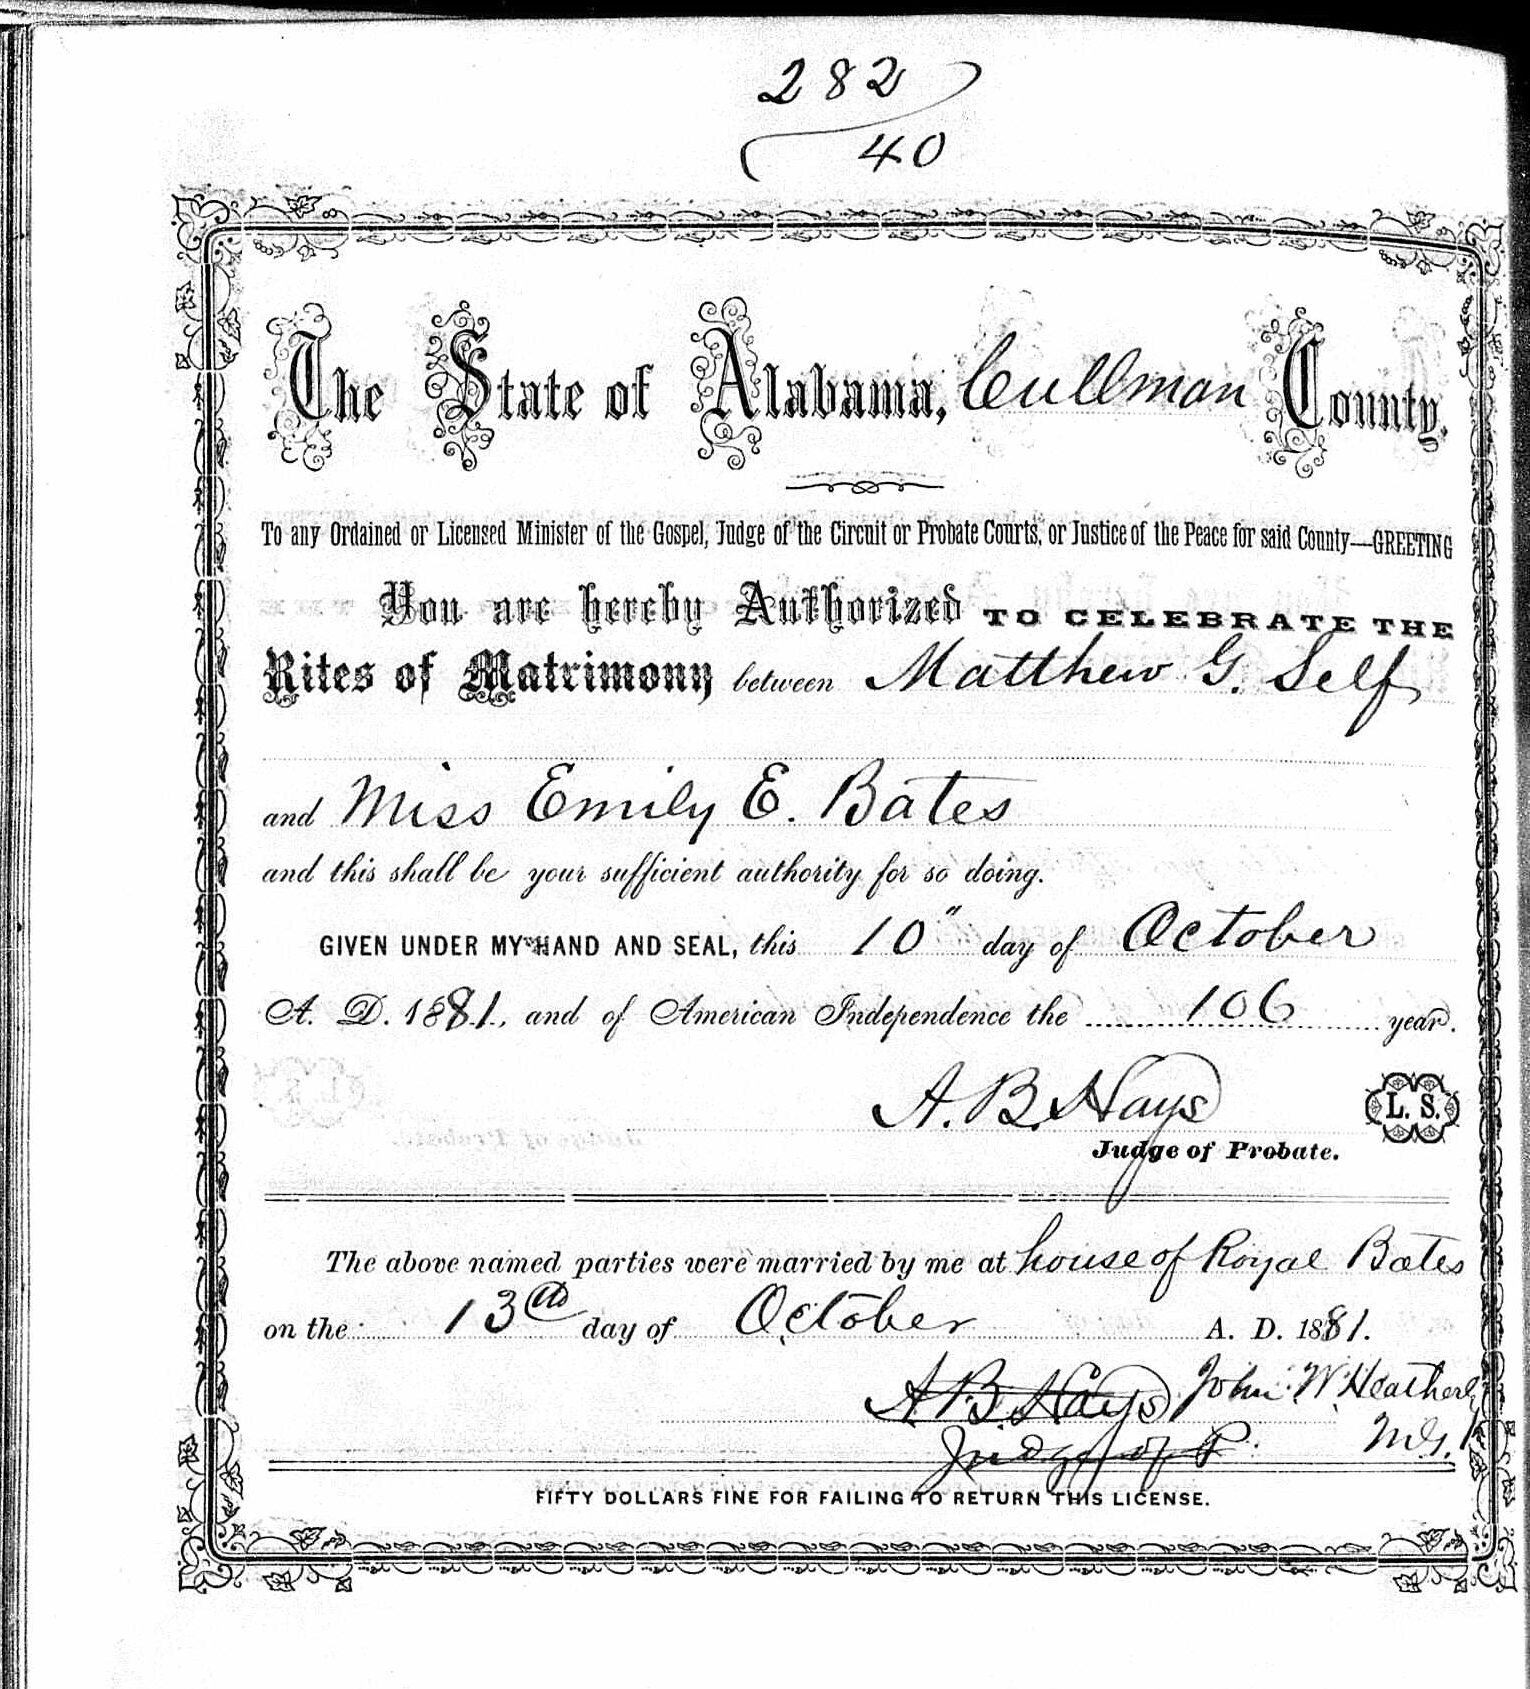 282
40
The State of Alabama, Cullman County.
To any Ordained or Licensed Minister of the Gospel, Judge of the Circuit or Probate Courts, or Justice of the Peace for said County—GREETING
You are hereby Authorized TO CELEBRATE THE
Rites of Matrimony between Matthew G. Self
and Miss Emily E. Bates
and this shall be your sufficient authority for so doing.
GIVEN UNDER MY HAND AND SEAL, this 10" day of October
A. D. 1881, and of American Independence the 106 year.
A. B. Hays L. S.
Judge of Probate.
The above named parties were married by me at house of Royal Bates
on the 13th day of October A. D. 1881.
A B. Hays John W. Heatherly
Judge of P.
FIFTY DOLLARS FINE FOR FAILING TO RETURN THIS LICENSE.